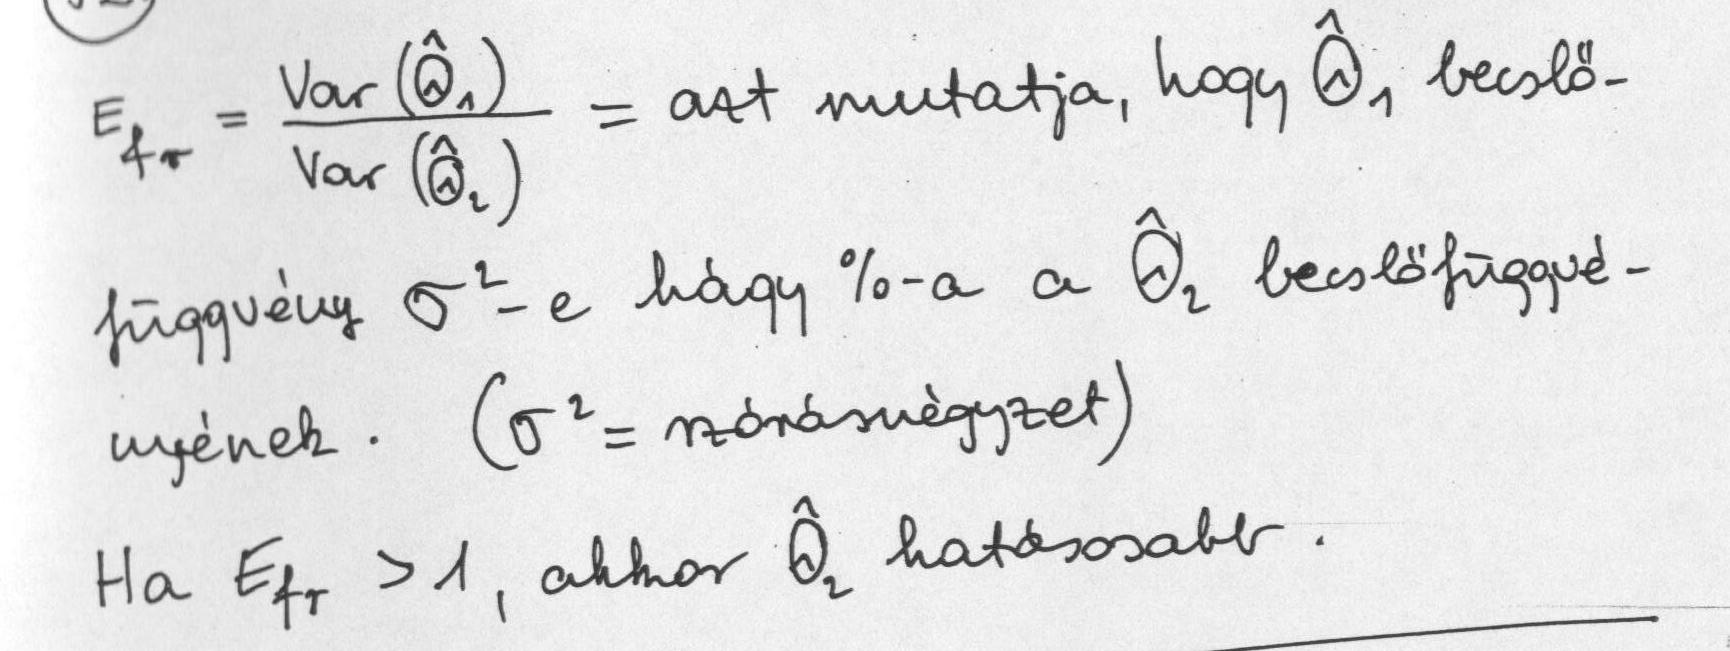 E_fr = Var(Θ̂₁) / Var(Θ̂₂) = azt mutatja, hogy Θ̂₁ becslő-
függvény σ²-e hágy %-a a Θ̂₂ becslőfüggvé-
nyének. (σ² = szórásnégyzet)
Ha E_fr > 1, akkor Θ̂₂ hatásosabb.